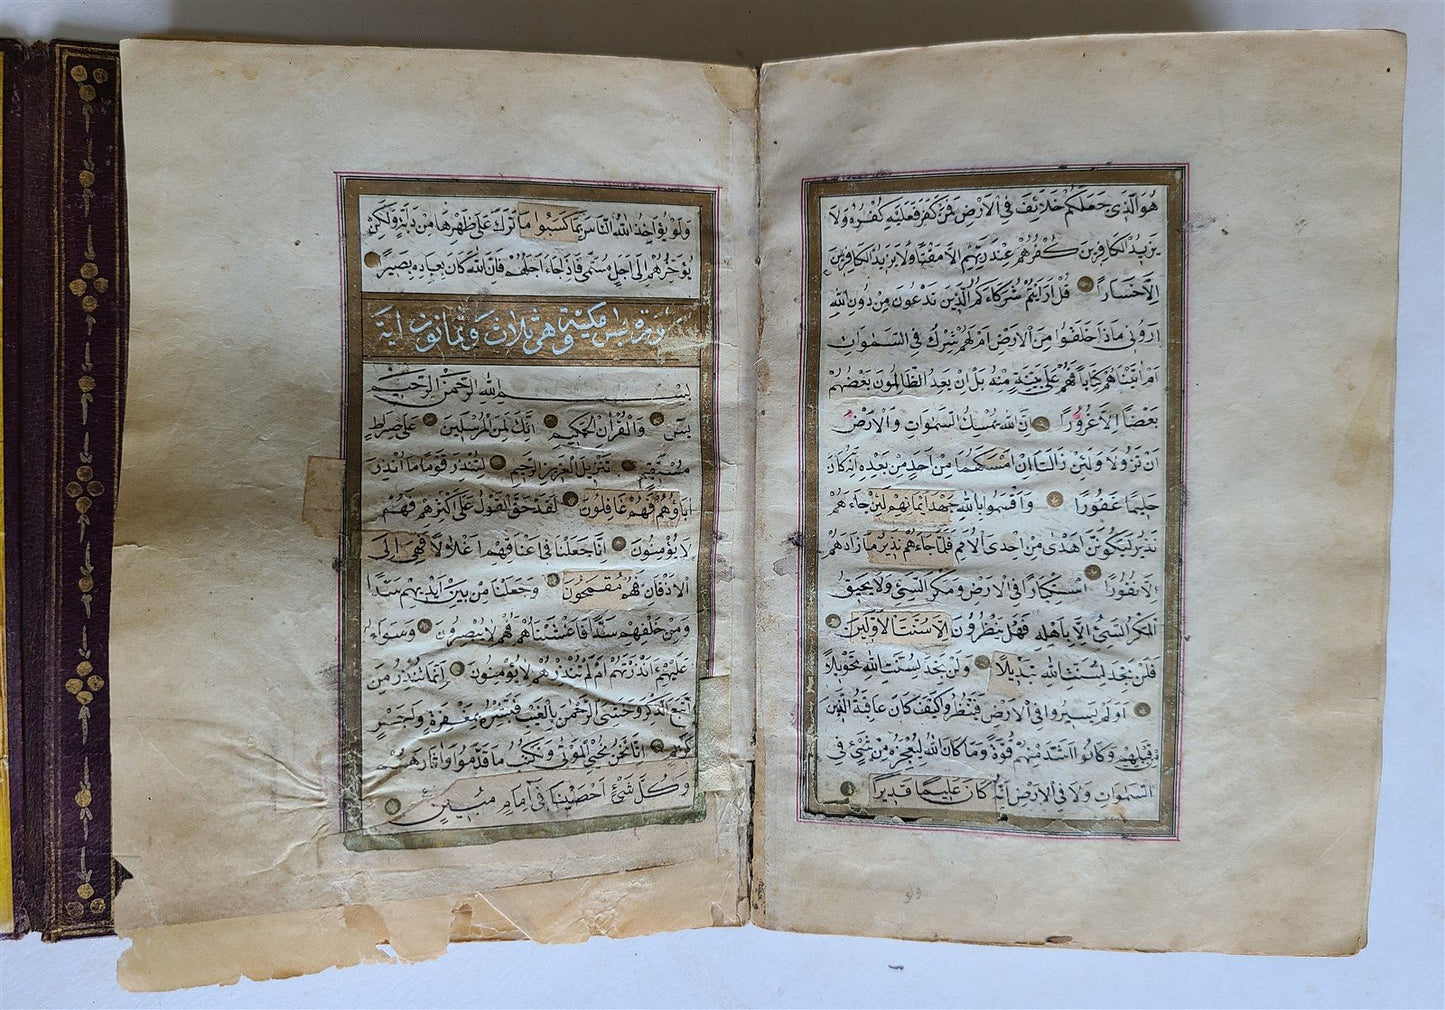 هُوَ الَّذِي جَعَلَكُمْ خَلَائِفَ فِي الْاَرْضِ فَمَنْ كَفَرَ فَعَلَيْهِ كُفْرُهُ وَلَا
يَزِيدُ الْكَافِرِينَ كُفْرُهُمْ عِنْدَ رَبِّهِمْ اِلَّا مَقْتًا وَلَا يَزِيدُ الْكَافِرِينَ
اِلَّا خَسَارًا قُلْ اَرَاَيْتُمْ شُرَكَاءَكُمُ الَّذِينَ تَدْعُونَ مِنْ دُونِ اللهِ
اَرُونِي مَاذَا خَلَقُوا مِنَ الْاَرْضِ اَمْ لَهُمْ شِرْكٌ فِي السَّمٰوَاتِ
اَمْ اٰتَيْنَاهُمْ كِتَابًا فَهُمْ عَلَى بَيِّنَةٍ مِنْهُ بَلْ اِنْ يَعِدُ الظَّالِمُونَ بَعْضُهُمْ
بَعْضًا اِلَّا غُرُورًا اِنَّ اللهَ يُمْسِكُ السَّمٰوَاتِ وَالْاَرْضَ
اَنْ تَزُولَا وَلَئِنْ زَالَتَا اِنْ اَمْسَكَهُمَا مِنْ اَحَدٍ مِنْ بَعْدِهِ اِنَّهُ كَانَ
حَلِيمًا غَفُورًا وَاَقْسَمُوا بِاللهِ جَهْدَ اَيْمَانِهِمْ لَئِنْ جَاءَهُمْ
نَذِيرٌ لَيَكُونُنَّ اَهْدٰى مِنْ اِحْدَى الْاُمَمِ فَلَمَّا جَاءَهُمْ نَذِيرٌ مَا زَادَهُمْ
اِلَّا نُفُورًا اسْتِكْبَارًا فِي الْاَرْضِ وَمَكْرَ السَّيِّئِ وَلَا يَحِيقُ
الْمَكْرُ السَّيِّئُ اِلَّا بِاَهْلِهِ فَهَلْ يَنْظُرُونَ اِلَّا سُنَّتَ الْاَوَّلِينَ
فَلَنْ تَجِدَ لِسُنَّتِ اللهِ تَبْدِيلًا وَلَنْ تَجِدَ لِسُنَّتِ اللهِ تَحْوِيلًا
اَوَلَمْ يَسِيرُوا فِي الْاَرْضِ فَيَنْظُرُوا كَيْفَ كَانَ عَاقِبَةُ الَّذِينَ
مِنْ قَبْلِهِمْ وَكَانُوا اَشَدَّ مِنْهُمْ قُوَّةً وَمَا كَانَ اللهُ لِيُعْجِزَهُ مِنْ شَيْءٍ فِي
السَّمٰوَاتِ وَلَا فِي الْاَرْضِ اِنَّهُ كَانَ عَلِيمًا قَدِيرًا
ولو
وَلَوْ يُؤَاخِذُ اللهُ النَّاسَ بِمَا كَسَبُوا مَا تَرَكَ عَلٰى ظَهْرِهَا مِنْ دَابَّةٍ وَلٰكِنْ
يُؤَخِّرُهُمْ اِلٰى اَجَلٍ مُسَمًّى فَاِذَا جَاءَ اَجَلُهُمْ فَاِنَّ اللهَ كَانَ بِعِبَادِهِ بَصِيرًا
سورة يس مكية وهي ثلاث وثمانون اية
بِسْمِ اللهِ الرَّحْمٰنِ الرَّحِيمِ
يٰسٓ وَالْقُرْاٰنِ الْحَكِيمِ اِنَّكَ لَمِنَ الْمُرْسَلِينَ عَلٰى صِرَاطٍ
مُسْتَقِيمٍ تَنْزِيلَ الْعَزِيزِ الرَّحِيمِ لِتُنْذِرَ قَوْمًا مَا اُنْذِرَ
اٰبَاؤُهُمْ فَهُمْ غَافِلُونَ لَقَدْ حَقَّ الْقَوْلُ عَلٰى اَكْثَرِهِمْ فَهُمْ
لَا يُؤْمِنُونَ اِنَّا جَعَلْنَا فِي اَعْنَاقِهِمْ اَغْلَالًا فَهِيَ اِلَى
الْاَذْقَانِ فَهُمْ مُقْمَحُونَ وَجَعَلْنَا مِنْ بَيْنِ اَيْدِيهِمْ سَدًّا
وَمِنْ خَلْفِهِمْ سَدًّا فَاَغْشَيْنَاهُمْ فَهُمْ لَا يُبْصِرُونَ وَسَوَاءٌ
عَلَيْهِمْ ءَاَنْذَرْتَهُمْ اَمْ لَمْ تُنْذِرْهُمْ لَا يُؤْمِنُونَ اِنَّمَا تُنْذِرُ مَنِ
اتَّبَعَ الذِّكْرَ وَخَشِيَ الرَّحْمٰنَ بِالْغَيْبِ فَبَشِّرْهُ بِمَغْفِرَةٍ وَاَجْرٍ
كَرِيمٍ اِنَّا نَحْنُ نُحْيِي الْمَوْتٰى وَنَكْتُبُ مَا قَدَّمُوا وَاٰثَارَهُمْ
وَكُلَّ شَيْءٍ اَحْصَيْنَا فِي اِمَامٍ مُبِينٍ